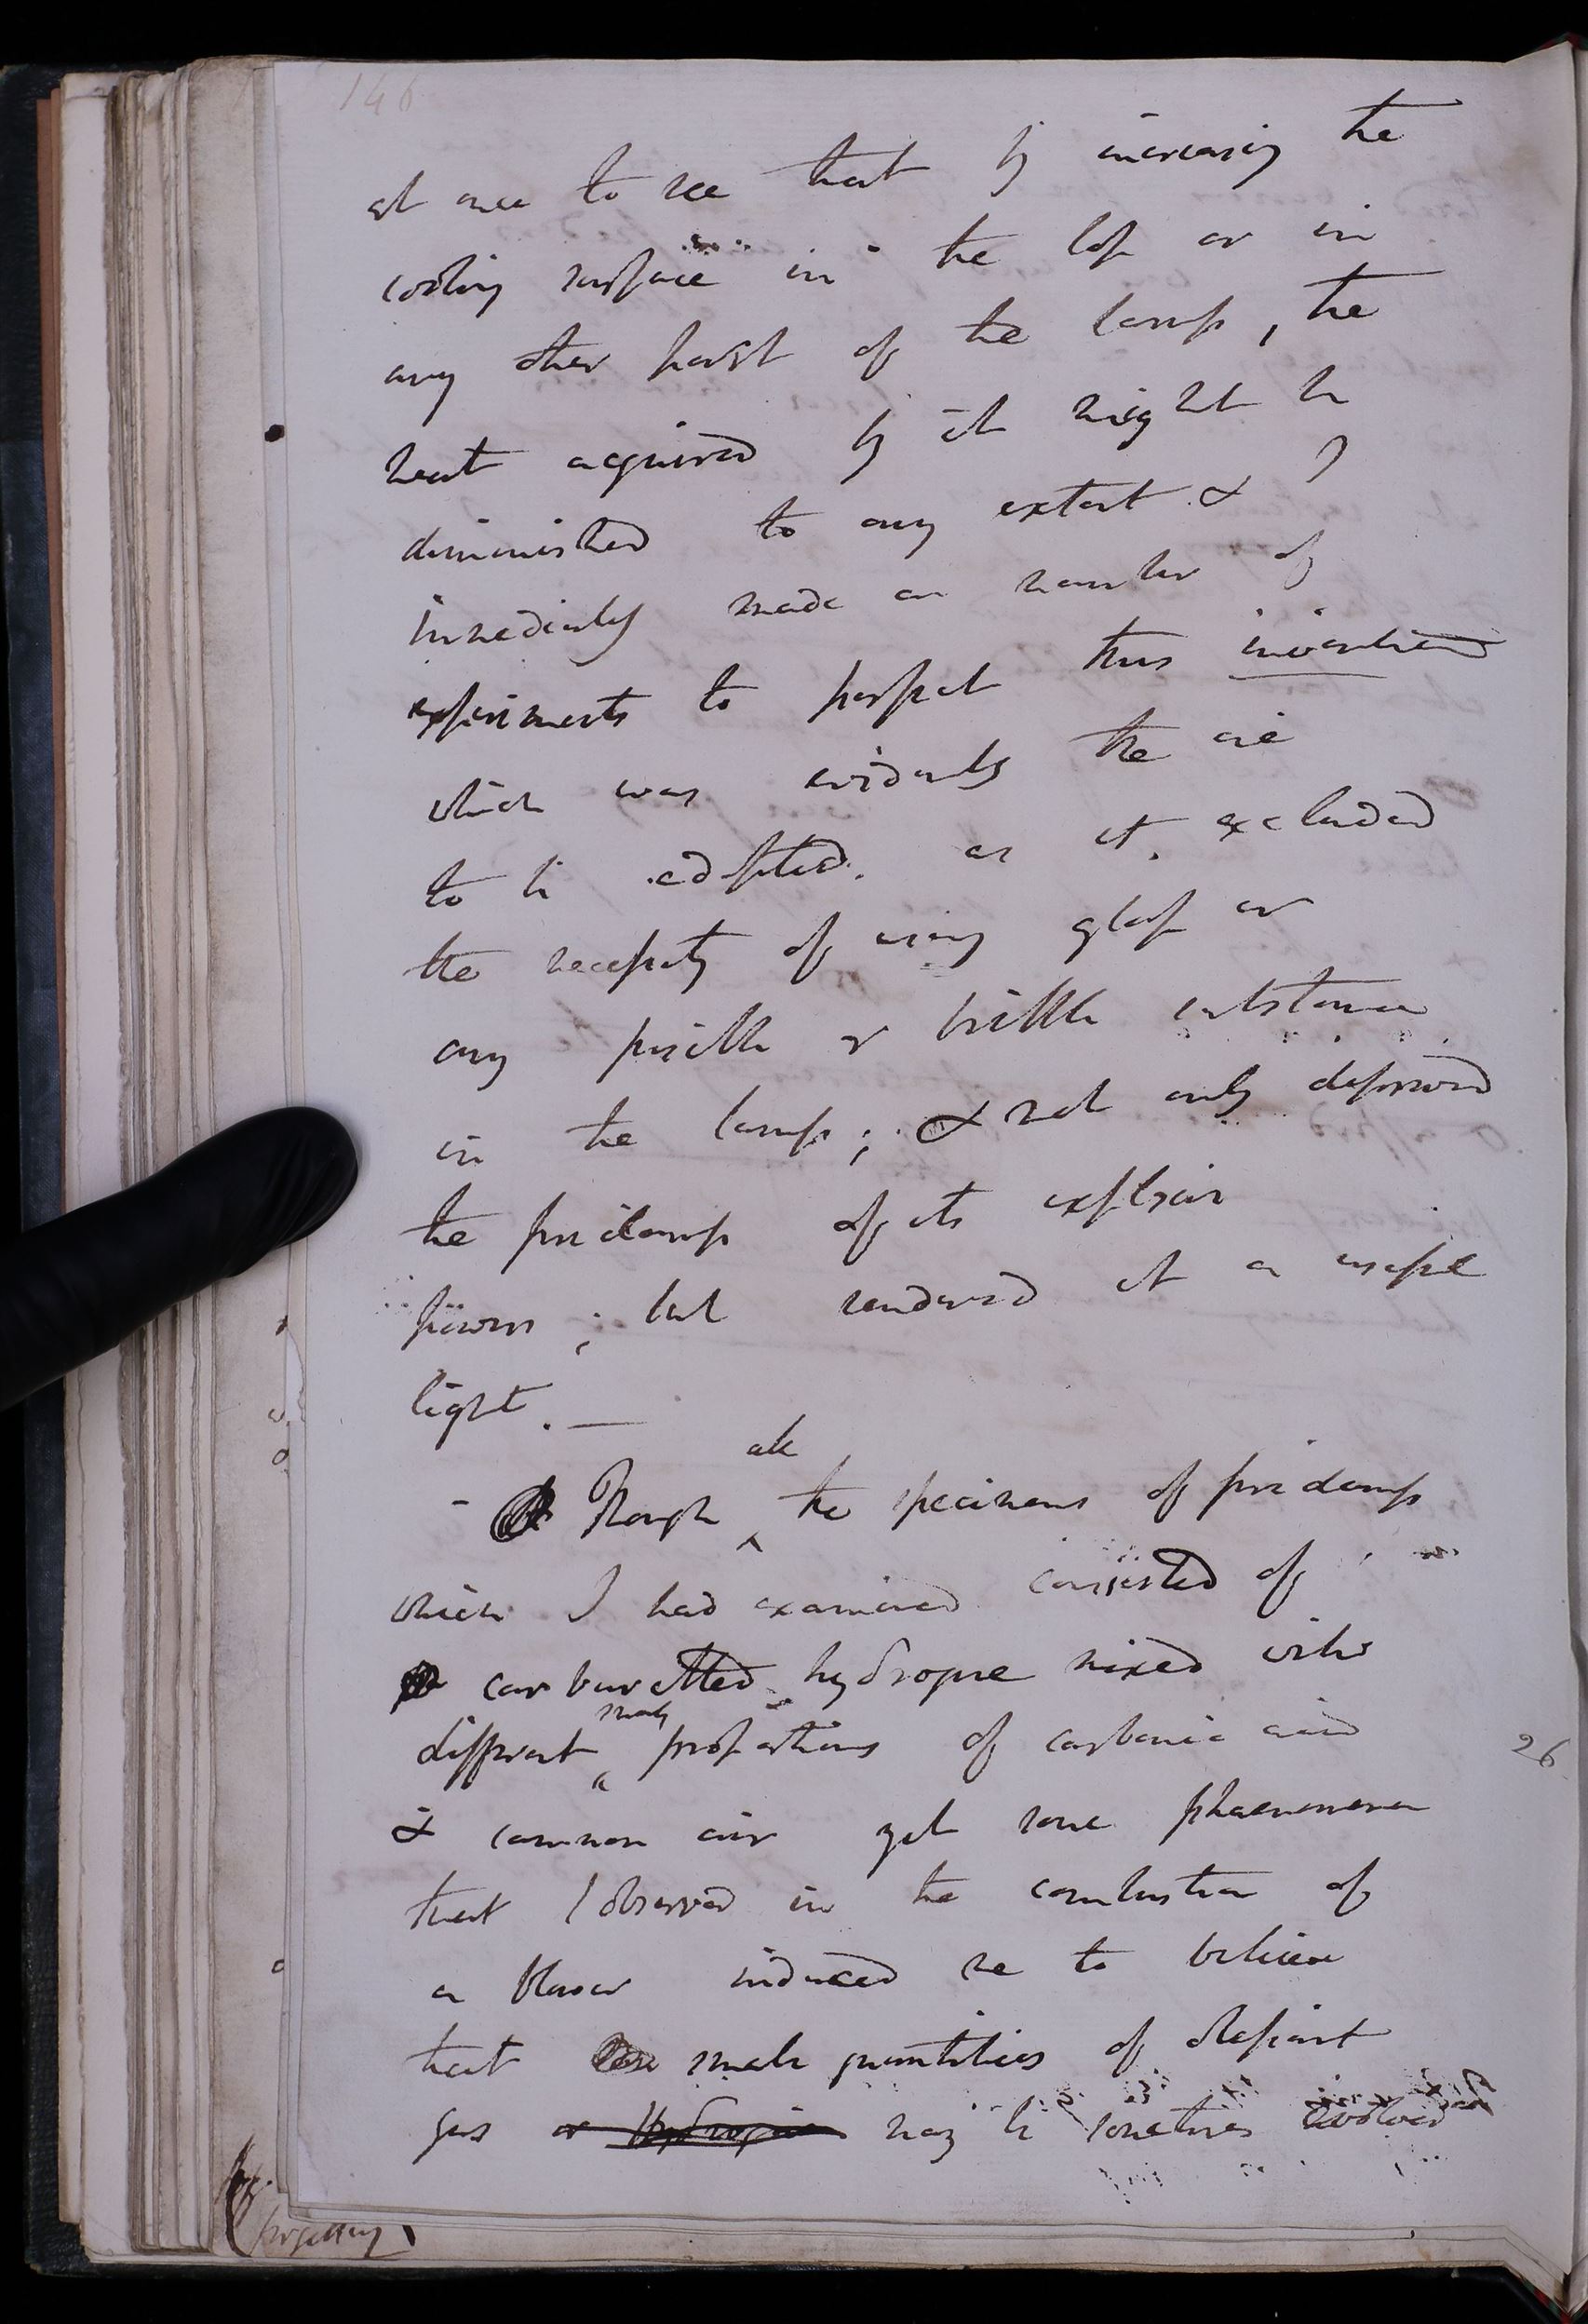 146
at once to see that by increasing the
cooling surface in the top or in
any other part of the lamp, the
heat acquired by it might be
diminished to any extent & I
immediately made a number of
experiments to perfect this invention
which was evidently the one
to be adopted. as it excluded
the necessity of using glass or
any fusible or brittle substance
in the lamp; & not only deprived
the fire damp of its explosive
powers; but rendered it a useful
light. —
all
- Though ^ the specimens of fire damp
which I had examined consisted of
carburetted hydrogene mixed with
small
different ^ proportions of carbonic acid
& common air yet some phaenomena
that I observed in the combustion of
a blower induced me to believe
that small quantities of olefiant
gas or Hydrogene may be sometimes evolved
26